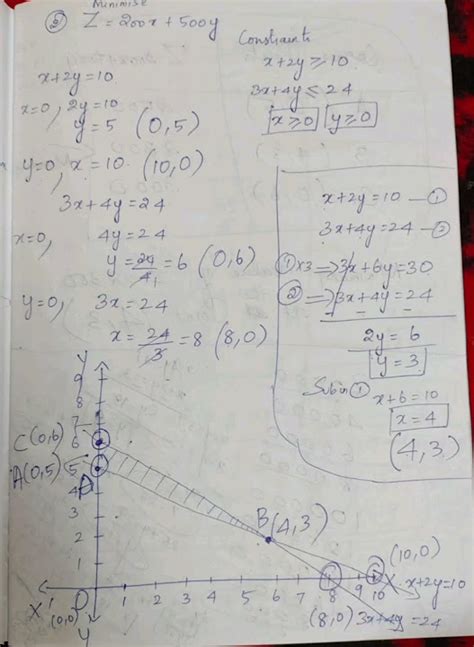 Minimise
⑤ Z = 200x + 500y
Constraints
x+2y ≥ 10
3x+4y ≤ 24
x ≥ 0 y ≥ 0
x+2y = 10
x=0, 2y = 10
y = 5 (0,5)
y=0, x = 10 (10,0)
3x+4y = 24
x=0, 4y = 24
y = 24/4 = 6 (0,6)
y=0, 3x = 24
x = 24/3 = 8 (8,0)
x+2y = 10 — ①
3x+4y = 24 — ②
① x3 ⇒ 3x+6y = 30
② ⇒ 3x+4y = 24
2y = 6
y = 3
Sub in ①
x+6 = 10
x = 4
(4,3)
Y
9
8
7
C(0,6) 6
A(0,5) 5
4
3
2
1
B(4,3)
(10,0)
X' O 1 2 3 4 5 6 7 8 9 10 X x+2y=10
(0,0)
Y
(8,0) 3x+4y = 24